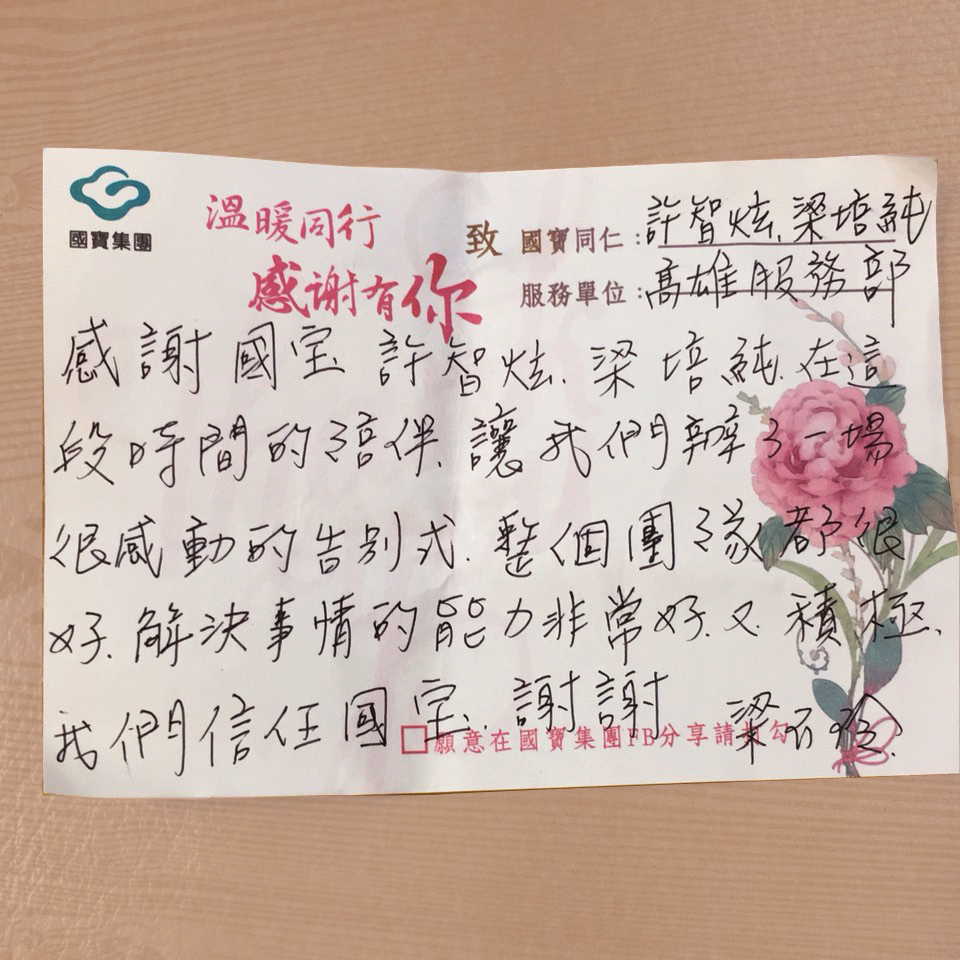 國寶集團
溫暖同行
感謝有你
致 國寶同仁:許智炫.梁培純
服務單位:高雄服務部
感謝國宝 許智炫.梁培純.在這
段時間的陪伴.讓我們辦了一場
很感動的告別式.整個團隊都很
好.解決事情的能力非常好.又積極.
我們信任國宝.謝謝 梁
願意在國寶集團FB分享請打勾